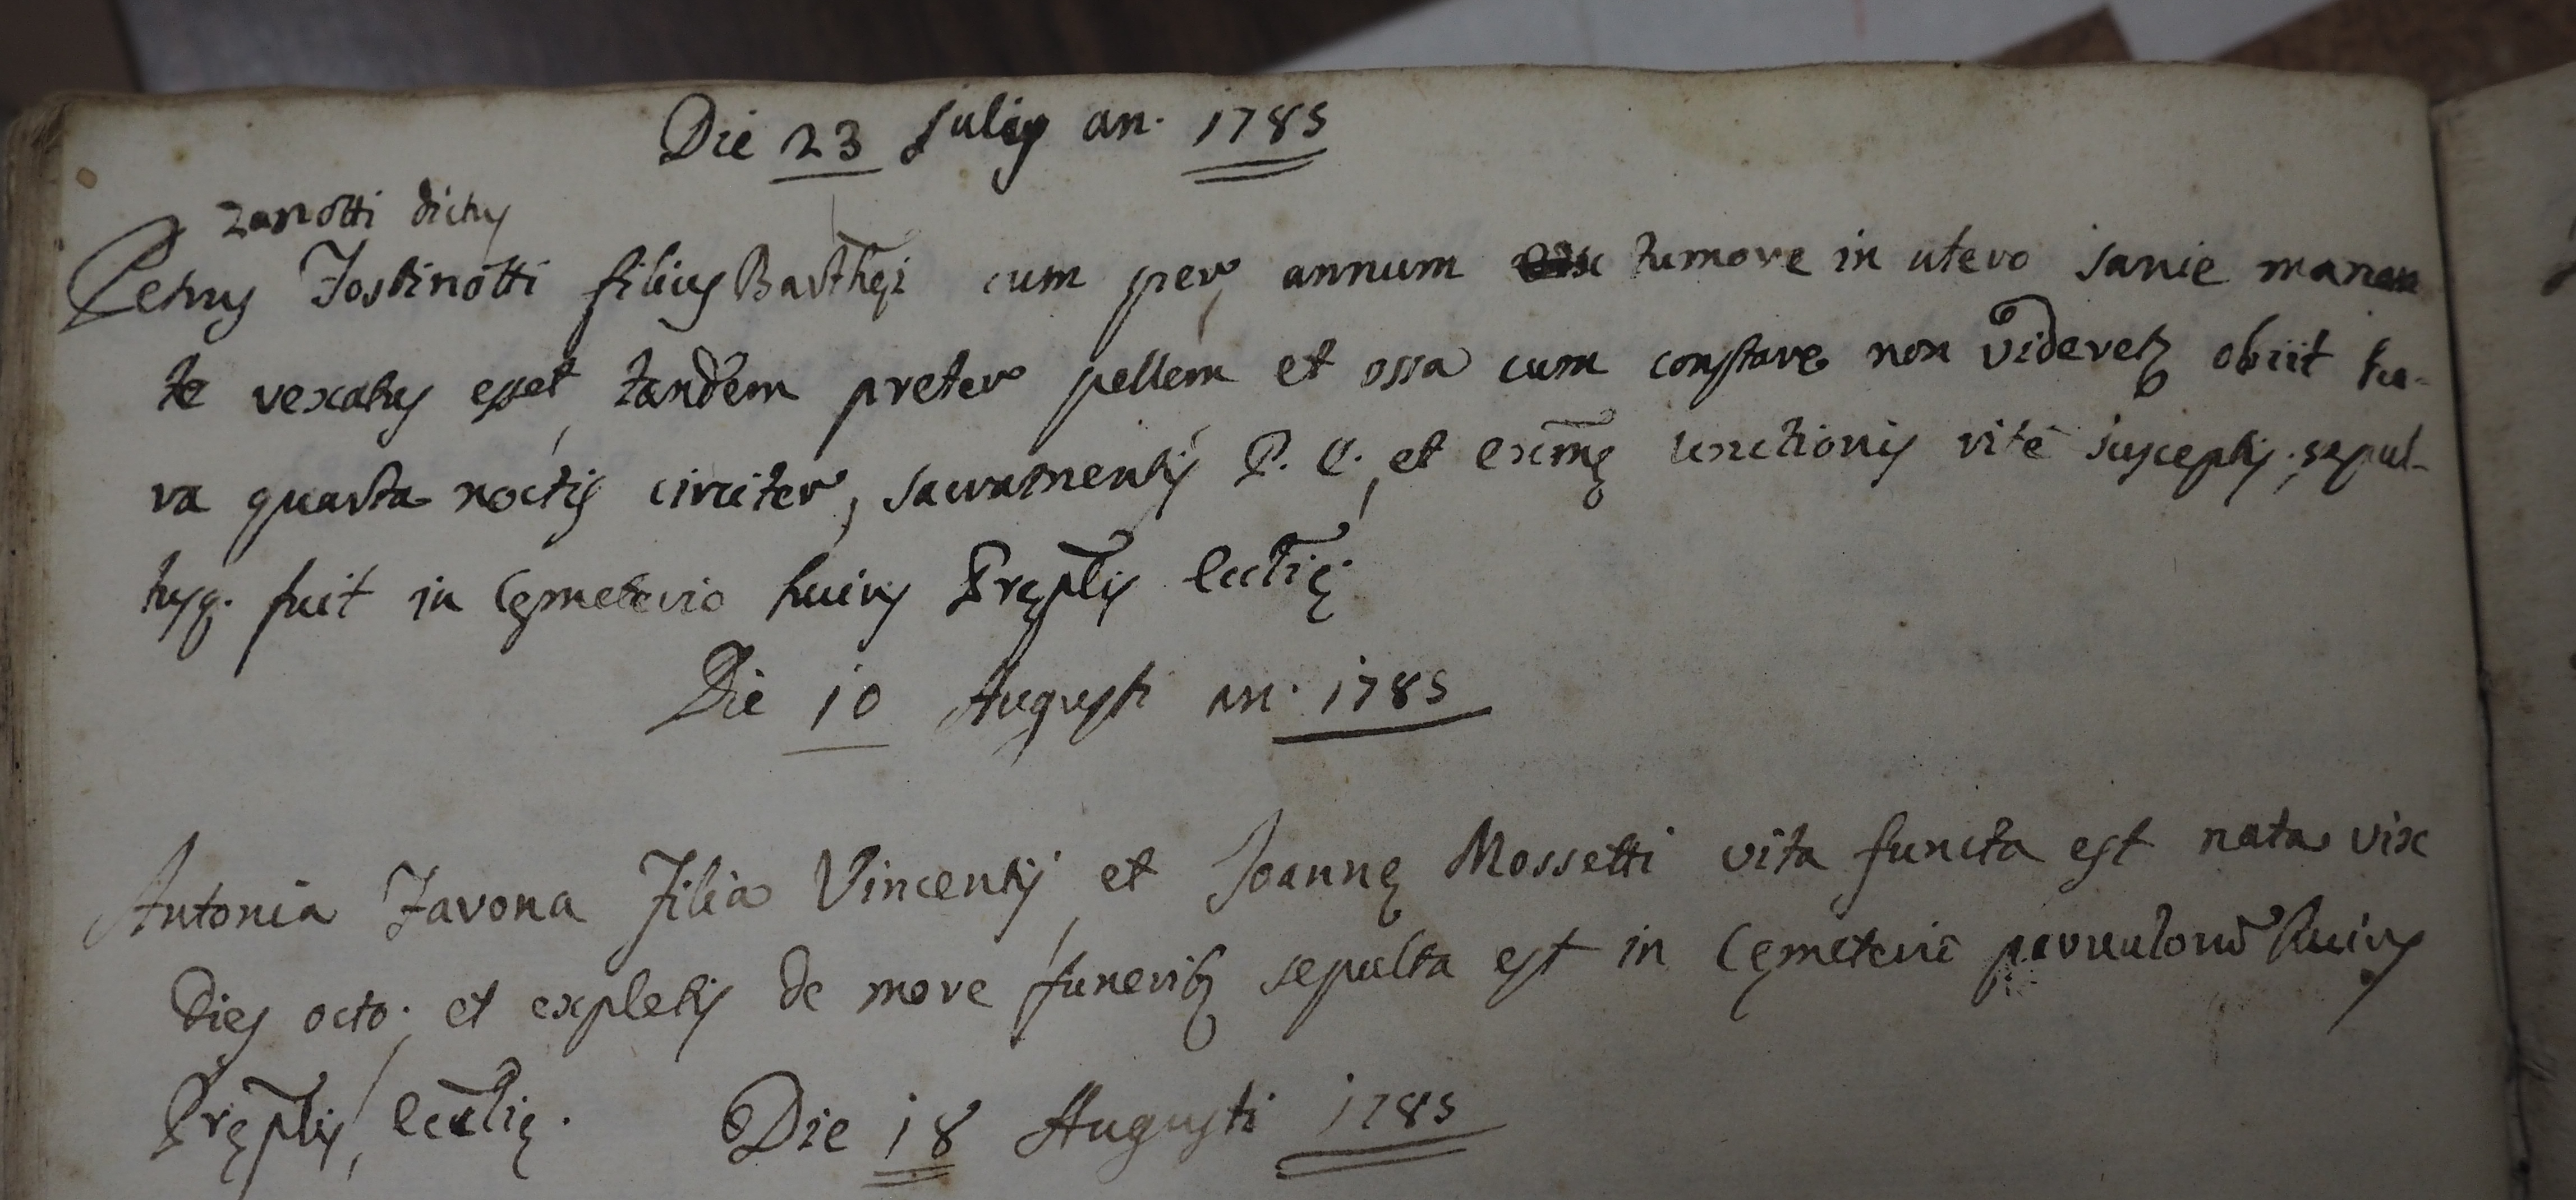 Die 23 Julij an. 1785
Zanotti dictus
Petrus Tostinotti filius Barthęi cum per annum tumore in utero sanie manan
te vexatus esset, tandem preter pellem et ossa cum constare non videretꝫ obiit ho-
ra quarta noctis circiter, sacramentis P. E. et extmę unctionis rite susceptis; sepul-
tusq. fuit in Cęmeterio huius Pręptis Ecclię.
Die 10 Augusti an. 1785
Antonia Tavona Filia Vincentij et Joannę Mossetti vita functa est nata vix
dies octo; et expletis de more funeribꝫ sepulta est in Cęmeterio parvulorū huius
Pręptis Ecclię. Die 18 Augusti 1785